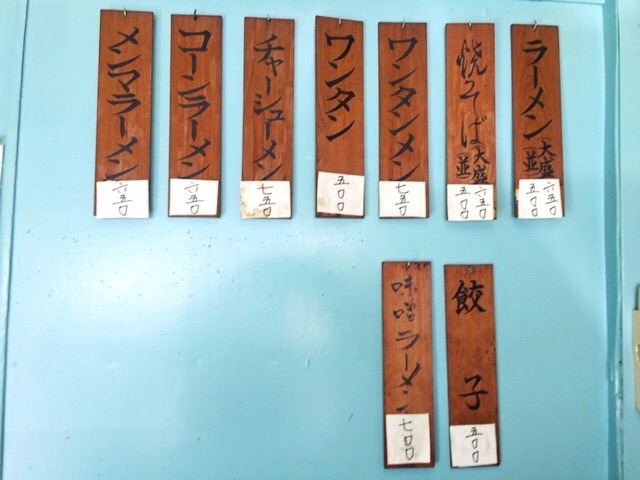 ラーメン(大盛 六五〇
並 五〇〇
焼そば(大盛 六五〇
並 五〇〇
ワンタンメン 七五〇
ワンタン 五〇〇
チャーシューメン 七五〇
コーンラーメン 六五〇
メンマラーメン 六五〇
餃子 五〇〇
味噌ラーメン 七〇〇